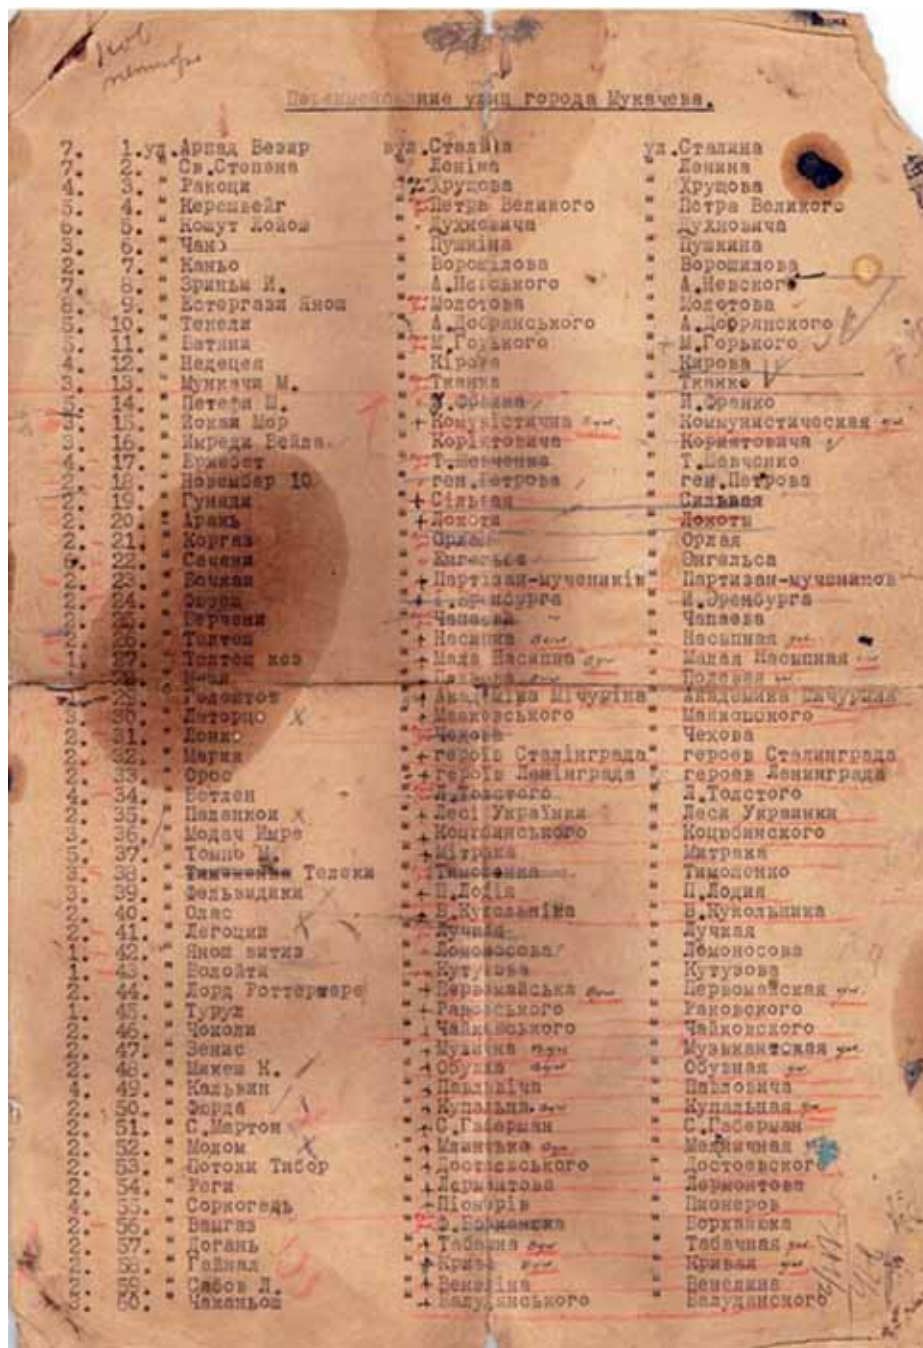 Переименование улиц города Мукачева.
7. 1. ул. Арпад Везир вул. Сталіна ул. Сталина
7. 2. " Св. Стопана " Леніна " Ленина
4. 3. " Ракоци " Хрущова " Хрущова
5. 4. " Керешвейг " Петра Великого " Петра Великого
6. 5. " Кошут Лойош " Духновича " Духновича
3. 6. " " Пушкіна " Пушкина
2. 7. " Каньо " Ворошілова " Ворошилова
7. 8. " Зриньи И. " А.Невського " А.Невского
8. 9. " Естергази Янош " Молотова " Молотова
5. 10. " Текели " А.Добрянського " А.Добрянского
5. 11. " Батяни " М.Горького " М.Горького
4. 12. " Недецея " Кірова " Кирова
3. 13. " Мункачи М. " Тканка " Тканко
5. 14. " Петефи Ш. " Франка " И.Франко
3. 15. " Йокаи Мор " + Комуністична вул. " Коммунистическая ул.
3. 16. " Имреди Бейла " Коріятовича " Кориятовича
4. 17. " Ержебет " Т.Шевченка " Т.Шевченко
2. 18. " Новембер 10 " ген.Петрова " ген.Петрова
2. 19. " Гуняди " + Сільвая " Сильвая
2. 20. " Арань " + Локоти " Локоты
2. 21. " Коргаз " Орлая " Орлая
22. " Сечени " Енгельса " Энгельса
2. 23. " Бочкаи " + Партизан-мучеників " Партизан-мучеников
24. " " + І.Еренбурга " И.Эренбурга
25. " Берчени " Чапаєва " Чапаева
26. " Толтеш " + Насипна вул. " Насыпная ул.
1. 27. " Толтеш кез " + Мала Насипна вул. " Малая Насыпная ул.
28. " " вул. " Полевая ул.
29. " " + Академіка Мічуріна " Академика Мичурина
3. 30. " Латорцо " + Маяковського " Маяковского
2. 31. " " Чехова " Чехова
2. 32. " Мария " + героїв Сталінграда " героев Сталинграда
2. 33. " Орос " + героїв Ленінграда " героев Ленинграда
4. 34. " Бетлен " Л.Толстого " Л.Толстого
2. 35. " Паланкои " + Лесі Українки " Леси Украинки
3. 36. " Модач Имре " + Коцюбинського " Коцюбинского
5. 37. " Томпо М. " + Мітрака " Митрака
3. 38. " Телеки " Тимошенка " Тимошенко
3. 39. " Фельвидики " + П.Лодія " П.Лодия
2. 40. " Олас " + В.Кукольніка " В.Кукольника
2. 41. " Легоции " Лучкая " Лучкая
1. 42. " Янош витиз " Ломоносова " Ломоносова
1. 43. " Болойти " Кутузова " Кутузова
2. 44. " Лорд Роттермере " + Первомайська вул. " Первомайская ул.
1. 45. " Турул " + Раковського " Раковского
2. 46. " Чоколи " + Чайковського " Чайковского
2. 47. " Зенис " + Музична вул. " Музыкантская ул.
2. 48. " Микеш К. " + Обувна вул. " Обувная ул.
4. 49. " Кальвин " + Павловіча " Павловича
2. 50. " Форда " + Купальна вул. " Купальная ул.
2. 51. " С.Мартон " + С.Габерман " С.Габерман
2. 52. " Молом " + Млинська вул. " Мельничная
2. 53. " Потоки Тибор " + Достоєвського " Достоевского
2. 54. " Реги " + Лермонтова " Лермонтова
4. 55. " Соркогедь " + Піонерів " Пионеров
2. 56. " Вамгаз " Ф.Борканюка " Борканюка
2. 57. " Догань " + Табачна вул. " Табачная ул.
2. 58. " Гайнал " + Крива вул. " Кривая ул.
2. 59. " Сабов Л. " + Венеліна " Венелина
3. 60. " Чаканьош " + Балудянського " Балуданского